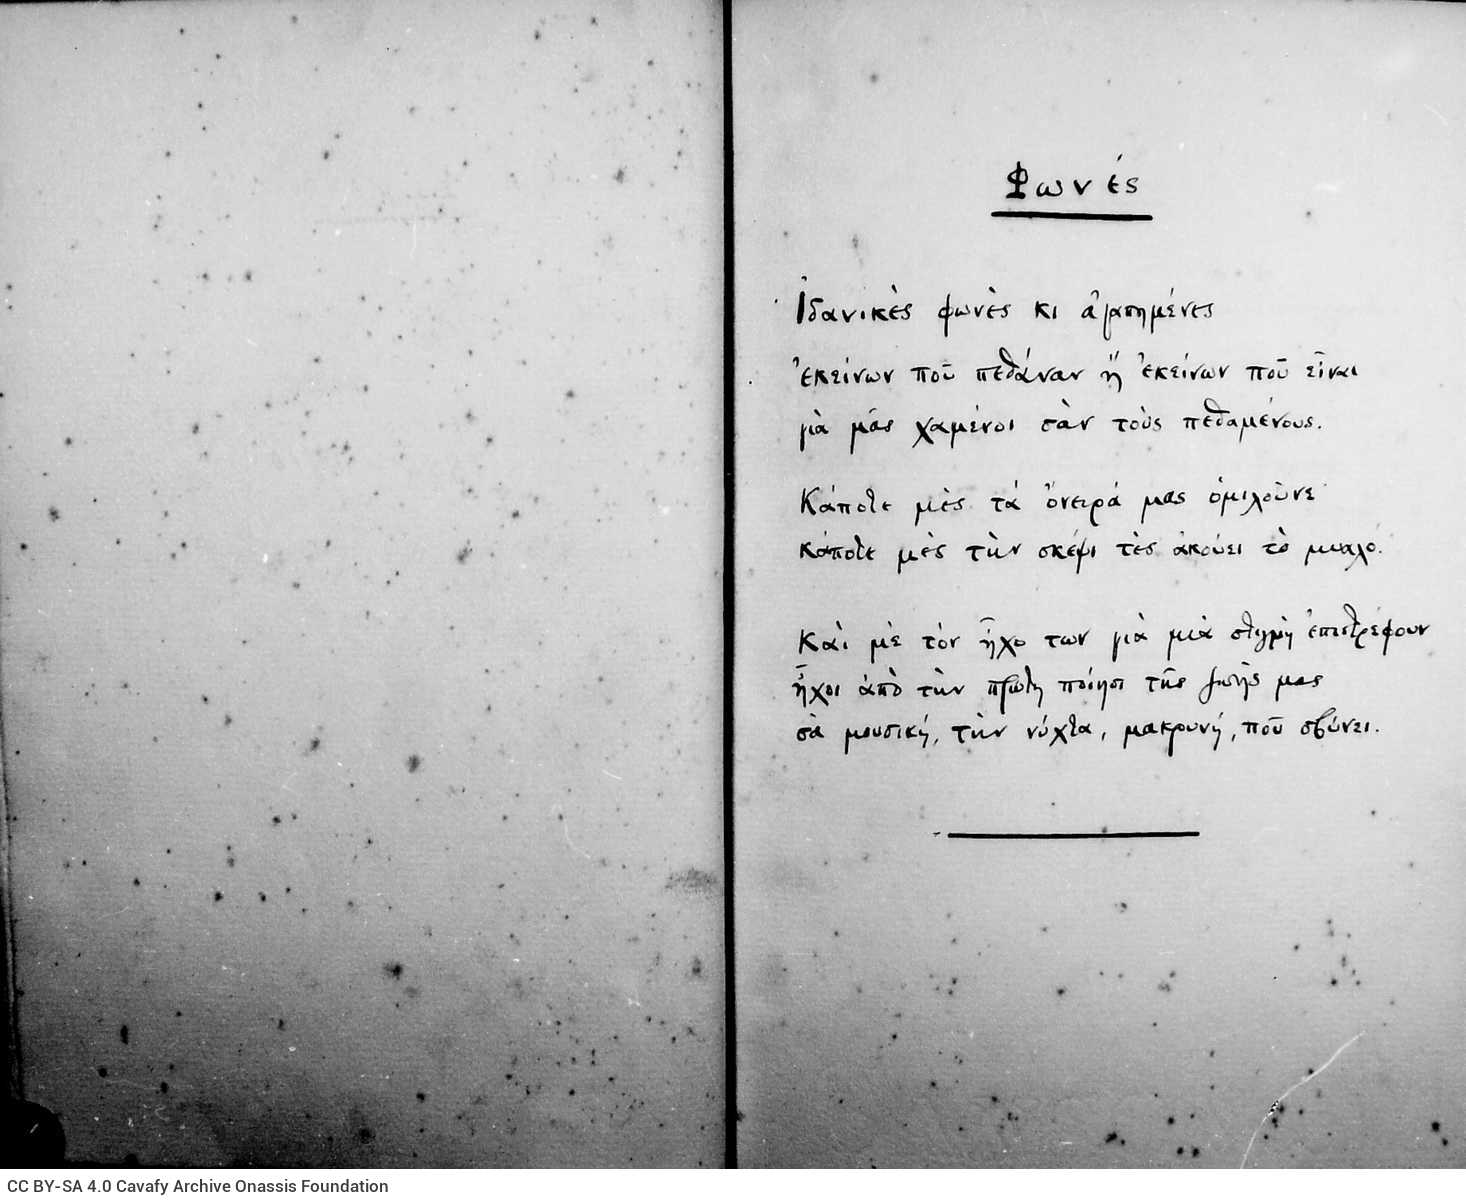 Φωνές
Ἰδανικὲς φωνὲς κι ἀγαπημένες
ἐκείνων ποῦ πεθάναν ἢ ἐκείνων ποῦ εἶναι
γιὰ μᾶς χαμένοι σὰν τοὺς πεθαμένους.
Κάποτε μὲς τὰ ὄνειρά μας ὁμιλοῦνε
κάποτε μὲς τὴν σκέψι τὲς ἀκούει τὸ μυαλό.
Καὶ μὲ τὸν ἦχο των γιὰ μιὰ στιγμὴ ἐπιστρέφουν
ἦχοι ἀπὸ τὴν πρώτη ποίησι τῆς ζωῆς μας
σὰ μουσική, τὴν νύχτα, μακρυνή, ποῦ σβύνει.
CC BY-SA 4.0 Cavafy Archive Onassis Foundation